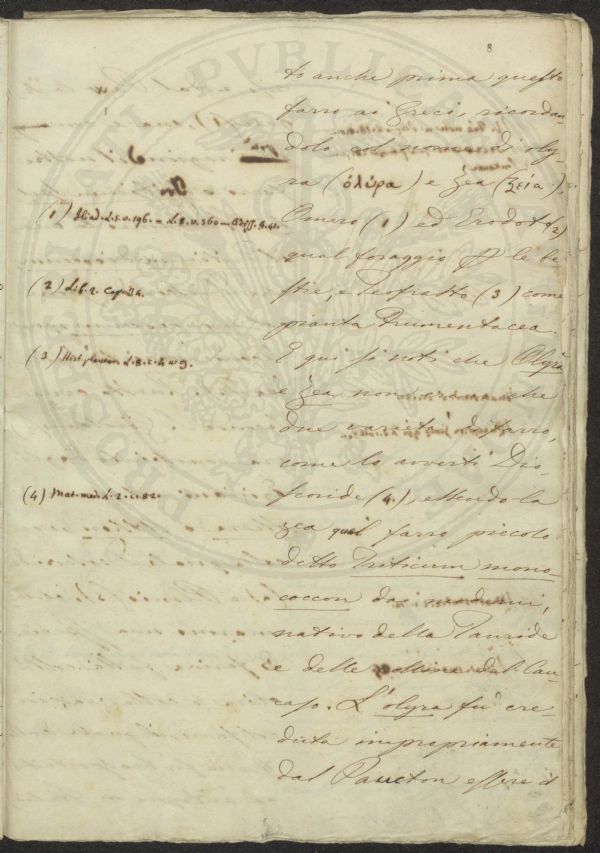 8
to anche prima questo
farro ai Greci, ricordan-
dolo col nome di oly-
ra (ὀλύρα) e zea (ζεία),
(1) Iliad. L. 5. v. 196. – L. 8. v. 560 – Odyss. 4. 41.
Omero (1) ed Erodoto (2)
qual foraggio per le be-
(2) Lib. 2. Cap. 36.
stie, e Teofrasto (3) come
pianta frumentacea.
(3) Hist. plantar. L. 8. c. 4. e 9.
E qui si noti che Olyra
e zea non che
due varietà di farro,
come lo avvertì Dio-
(4) Mat. med. L. 2. c. 82.
scoride (4), essendo la
zea quel farro piccolo
detto Triticum mono-
coccon da' moderni,
nativo della Tauride
e delle colline del Cau-
caso. L'olyra fu cre-
duta impropriamente
dal Paucton essere il